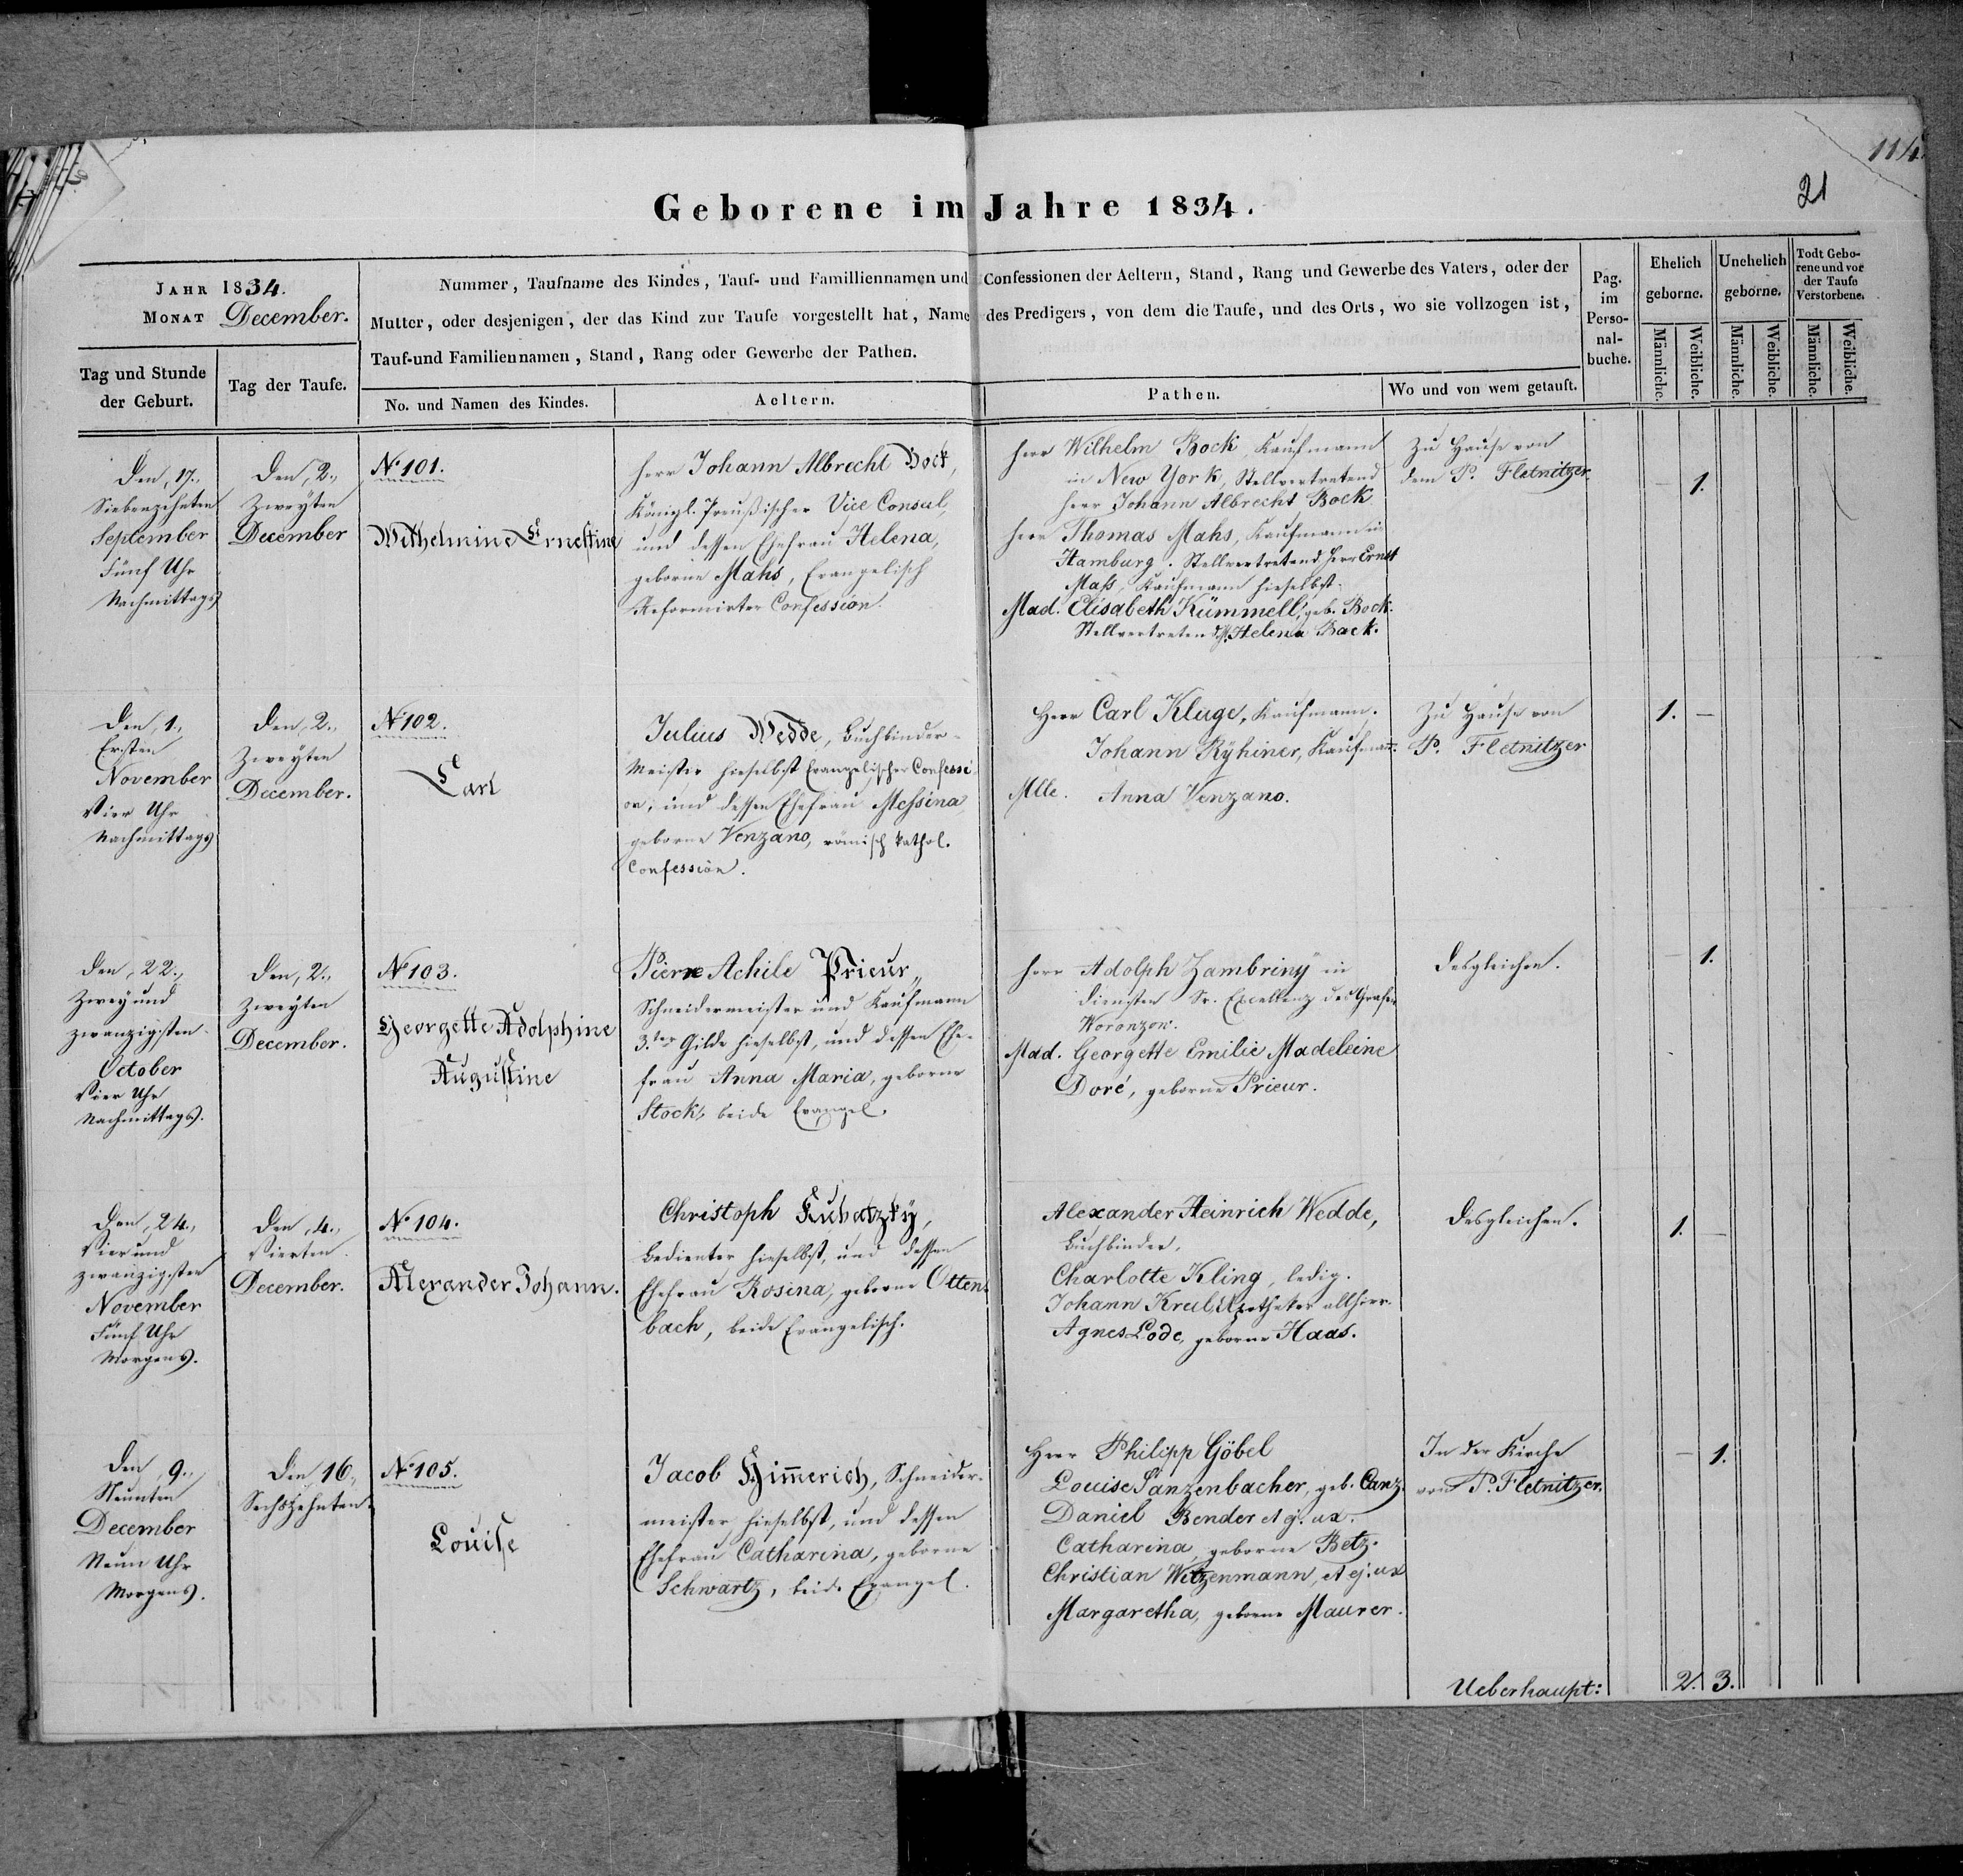 114.
21
Geborene im Jahre 1834.
JAHR 1834.
MONAT December.
Tag und Stunde
der Geburt.
Tag der Taufe.
Nummer, Taufname des Kindes, Tauf- und Familliennamen und Confessionen der Aeltern, Stand, Rang und Gewerbe des Vaters, oder der
Mutter, oder desjenigen, der das Kind zur Taufe vorgestellt hat, Name des Predigers, von dem die Taufe, und des Orts, wo sie vollzogen ist,
Tauf-und Familiennamen, Stand, Rang oder Gewerbe der Pathen.
No. und Namen des Kindes.
Aeltern.
Pathen.
Wo und von wem getauft.
Pag.
im
Perso-
nal-
buche.
Ehelich
geborne.
Unehelich
geborne.
Todt Gebo-
rene und vor
der Taufe
Verstorbene.
Männliche.
Weibliche.
Männliche.
Weibliche.
Männliche.
Weibliche.
Den, 17.,
Siebenzehnten
September
Fünf Uhr
Nachmittags
Den, 2.,
Zweyten
December
No 101.
Wilhelmine Ernestine
Herr Johann Albrecht Bock,
Königl. Preußischer Vice Consul,
und dessen Ehefrau Helena,
geborne Mahs, Evangelisch
Reformirter Confession.
Herr Wilhelm Bock, Kaufmann
in New York, Stellvertretend
Herr Johann Albrecht Bock
Herr Thomas Mahs, Kaufmann in
Hamburg. Stellvertretend Herr Ernst
Mahs, Kaufmann hieselbst.
Mad. Elisabeth Kümmell, geb. Bock.
Stellvertretend Helena Bock.
Zu Hause von
dem P. Fletnitzer.
– 1.
Den, 1.,
Ersten
November
Vier Uhr
Nachmittags
Den, 2.,
Zweyten
December.
No 102.
Carl
Julius Wedde, Buchbinder-
Meister hieselbst Evangelischer Confessi-
on, und dessen Ehefrau Messina,
geborne Venzano, römisch kathol.
Confession.
Herr Carl Kluge, Kaufmann.
Johann Ryhiner, Kaufmann.
Mlle. Anna Venzano.
Zu Hause von
P. Fletnitzer
1. –
Den, 22.,
Zwey und
zwanzigsten
October
Vier Uhr
Nachmittags.
Den, 2.,
Zweyten
December.
No 103.
Georgette Adolphine
Augustine
Pierre Achile Prieur,
Schneidermeister und Kaufmann
3.ter Gilde hieselbst, und dessen Ehe-
frau Anna Maria, geborne
Stock, beide Evangel.
Herr Adolph Zambriny in
Diensten Sr. Excellenz des Grafen
Woronzow.
Mad. Georgette Emilie Madeleine
Doré, geborne Prieur.
Desgleichen.
– 1.
Den, 24.,
Vier und
zwanzigsten
November
Fünf Uhr
Morgens.
Den, 4.,
Vierten
December.
No 104.
Alexander Johann.
Christoph Kubatzky,
Bedienter hieselbst, und dessen
Ehefrau Rosina, geborne Otten-
bach, beide Evangelisch.
Alexander Heinrich Wedde,
Buchbinder.
Charlotte Kling, ledig.
Johann Apotheker allhier.
Agnes Lode, geborne Haas.
Desgleichen.
1. –
Den, 9.,
Neunten
December
Neun Uhr
Morgens.
Den 16.,
Sechszehnten
No 105.
Louise
Jacob Himerich, Schneider-
meister hieselbst, und dessen
Ehefrau Catharina, geborne
Schwartz, beide Evangel.
Herr Philipp Göbel
Louise Sanzenbacher, geb. Canz.
Daniel Bender et ej. ux.
Catharina, geborne Betz.
Christian Witzenmann, et ej. ux
Margaretha, geborne Maurer.
In der Kirche
von P. Fletnitzer.
– 1.
Ueberhaupt: 2. 3.